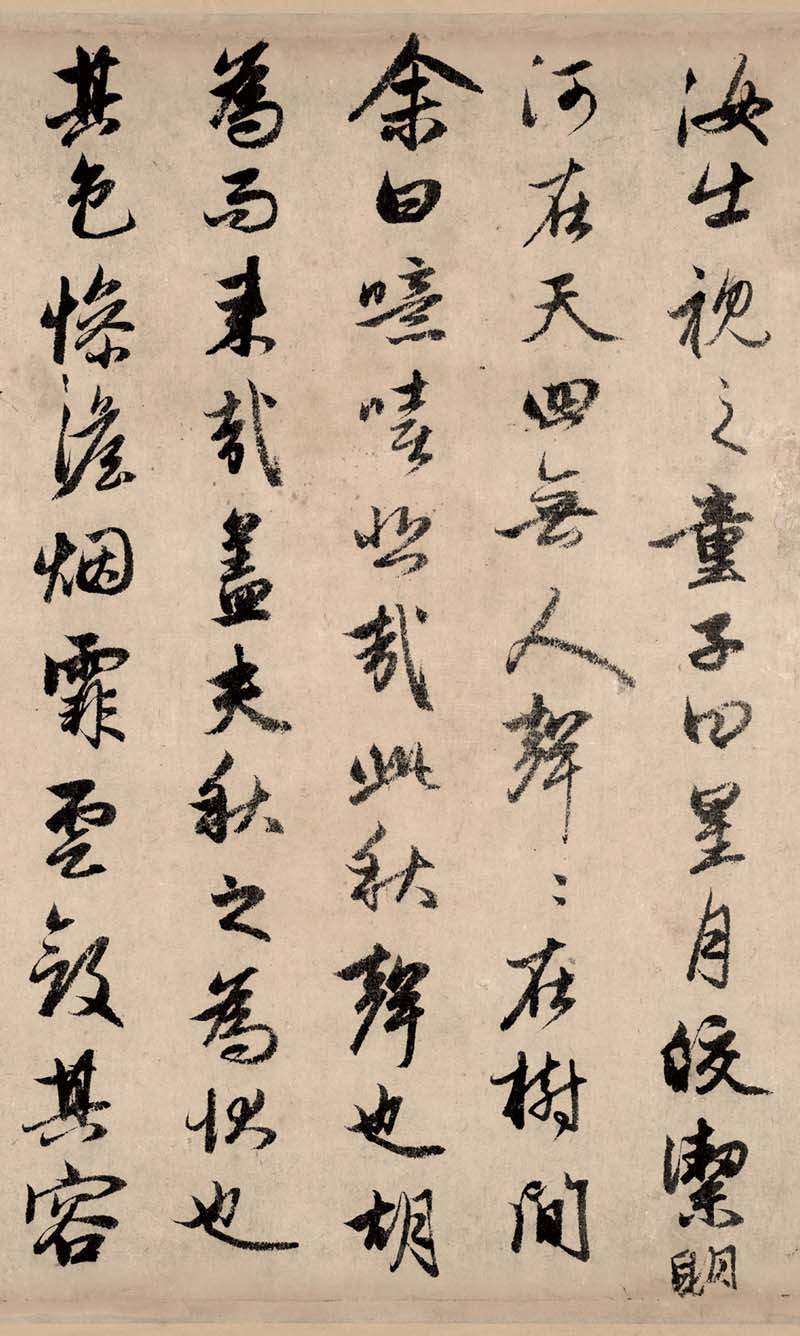 汝出視之童子曰星月皎潔明
河在天四無人聲〻在樹間
余曰噫嘻悲哉此秋聲也胡
為而来哉蓋夫秋之為狀也
其色慘澹烟霏雲斂其容